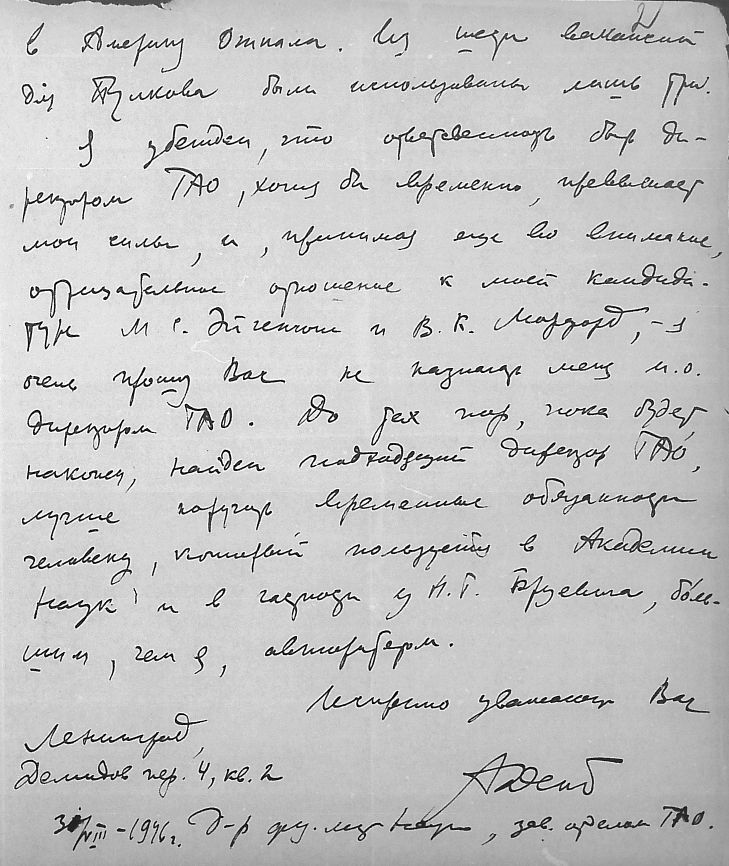 2
в Америку отпала. Из шести вакансий
для Пулкова были использованы лишь три.
Я убежден, что ответственность быть ди-
ректором ТАО, хотя бы временно, превышает
мои силы, и, принимая еще во внимание,
отрицательное отношение к моей кандида-
туре М С. Эйгенсона и В. К. , – я
очень прошу Вас не назначать меня и.о.
директором ТАО. До тех пор, пока будет
наконец, найден подходящий директор ТАО,
лучше поручить временные обязанности
человеку, который пользуется в Академии
Наук и в частности у Н. Г. Бруевича, боль-
шим, чем я, авторитетом.
Искренно уважающий Вас
Ленинград,
Демидов пер. 4, кв. 2
VIII – 1946 г. Д-р физ.-мат наук, зав. отделом ТАО.